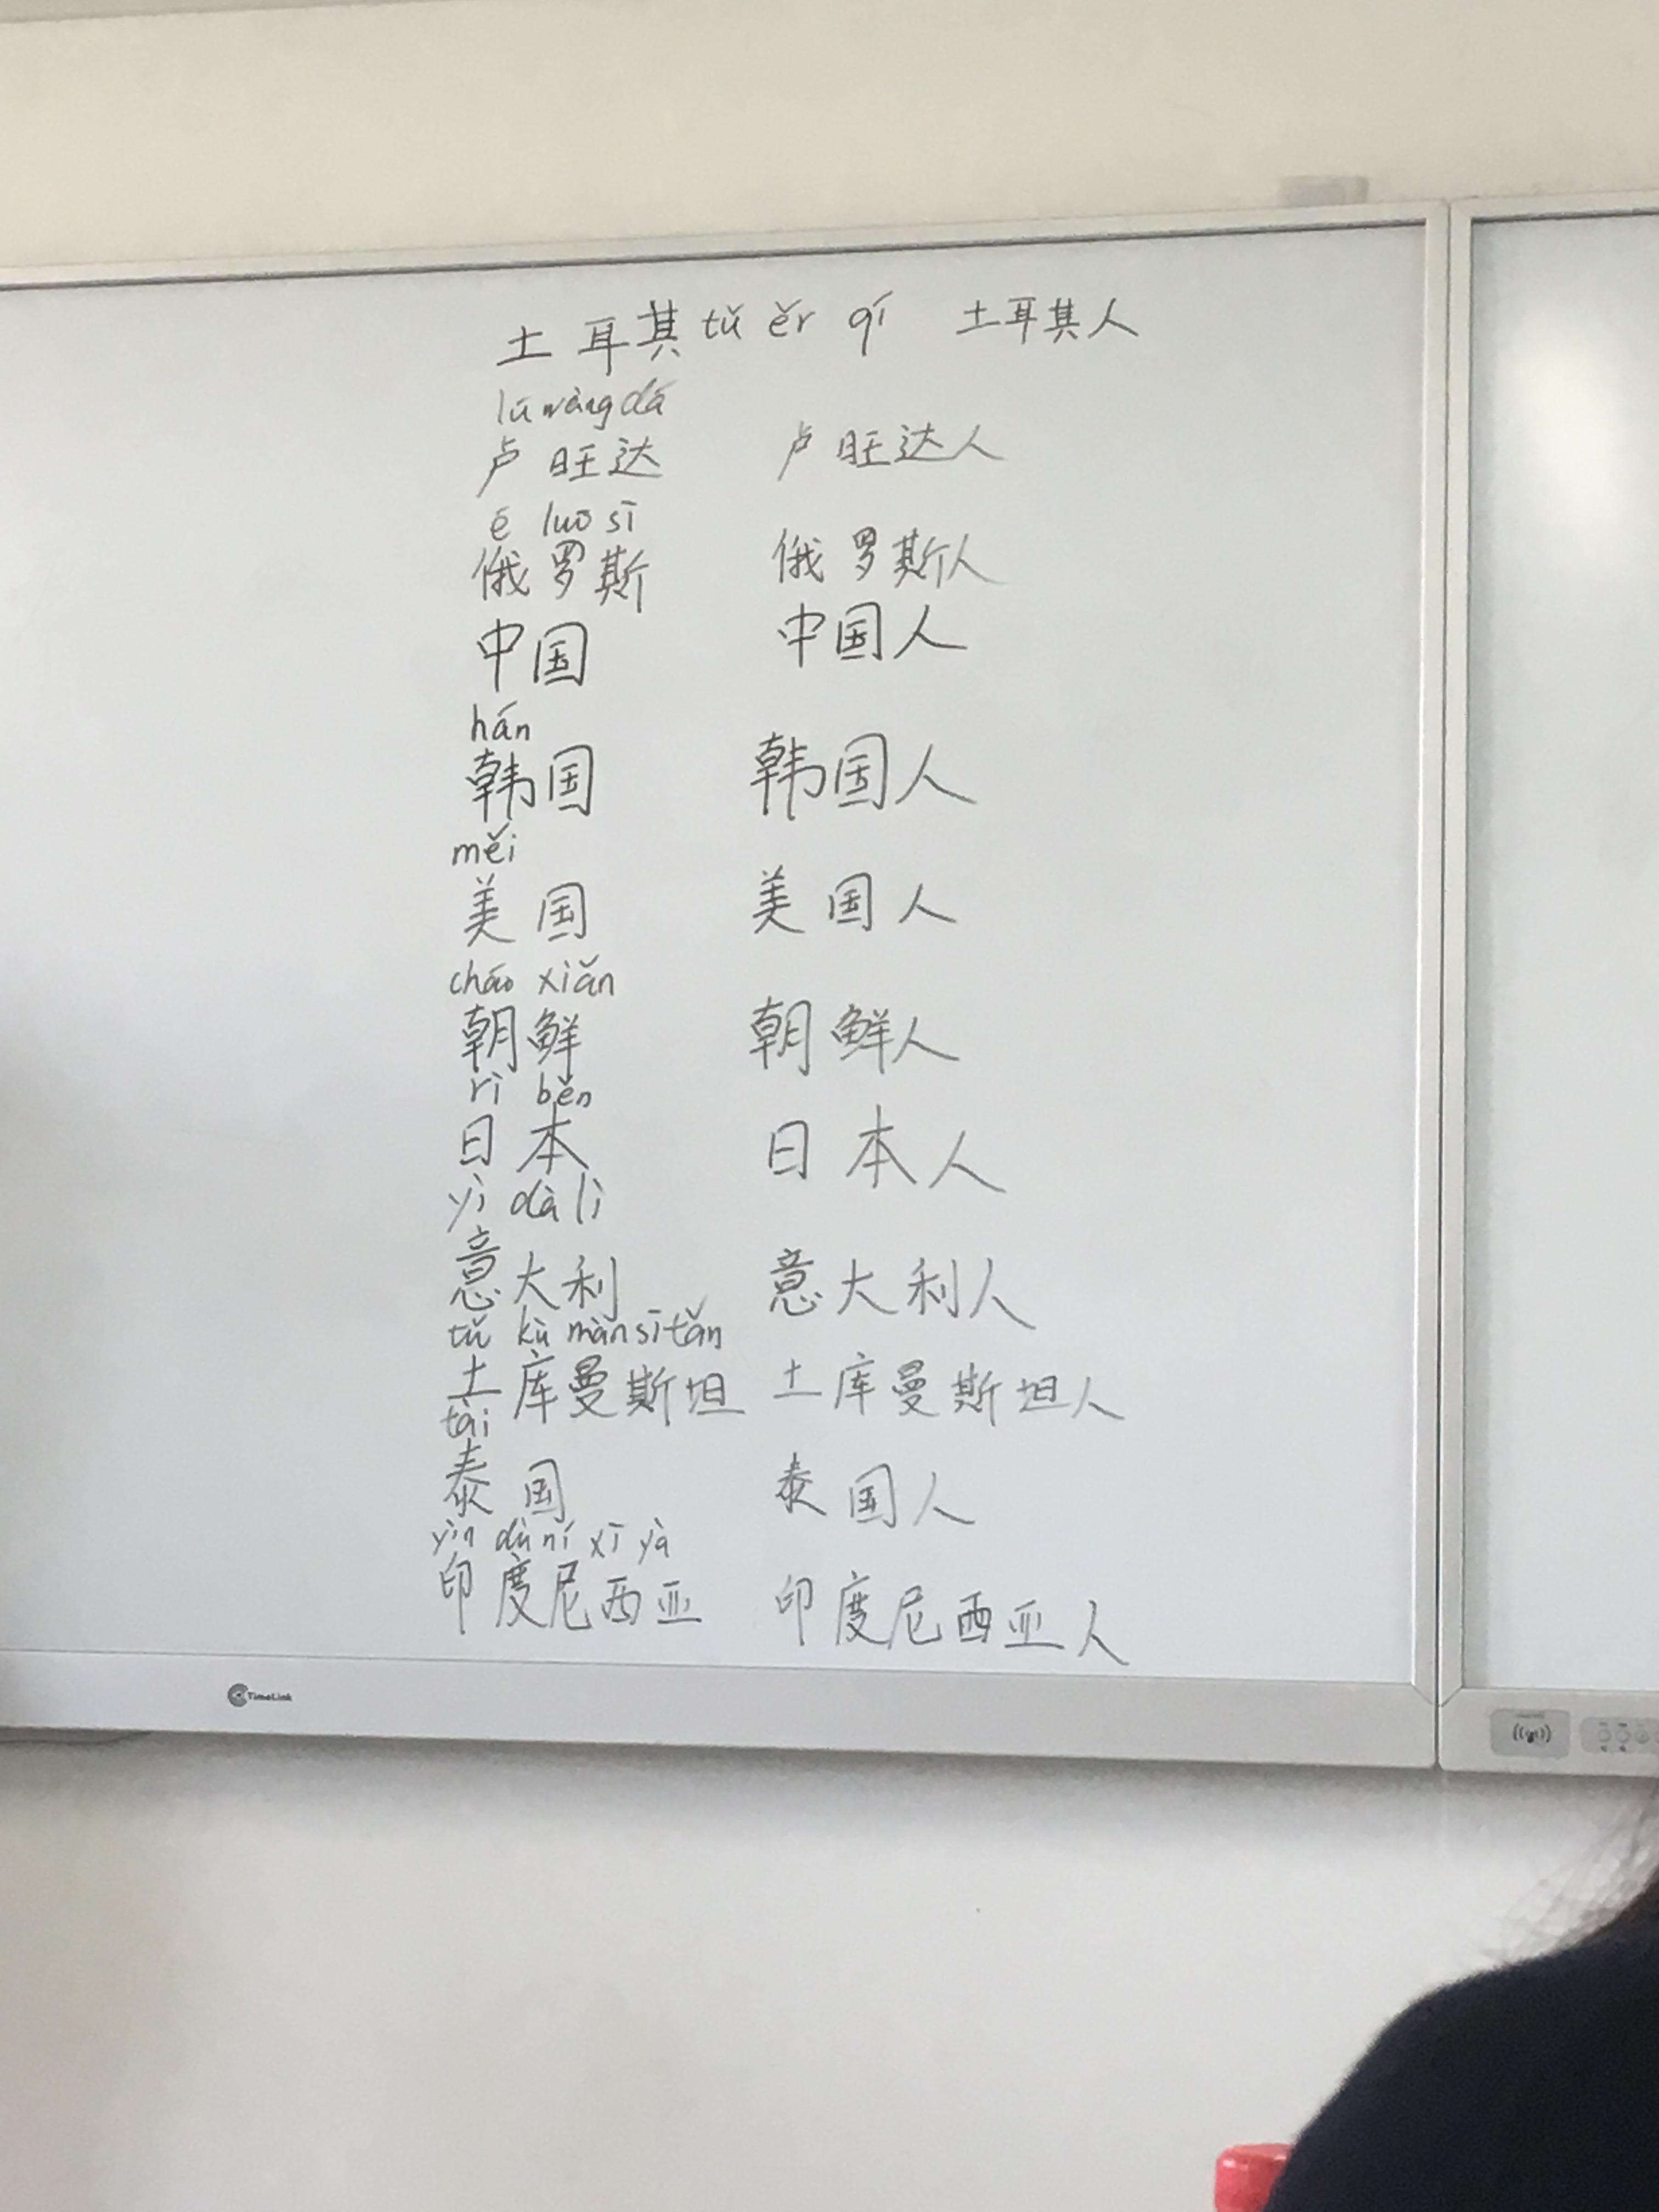 土耳其 tǔ ěr qí 土耳其人
lú wàng dá
卢旺达 卢旺达人
é luó sī
俄罗斯 俄罗斯人
中国 中国人
hán
韩国 韩国人
měi
美国 美国人
cháo xiǎn
朝鲜 朝鲜人
rì běn
日本 日本人
yì dà lì
意大利 意大利人
tǔ kù màn sī tǎn
土库曼斯坦 土库曼斯坦人
tài
泰国 泰国人
yìn dù ní xī yà
印度尼西亚 印度尼西亚人
TimeLink